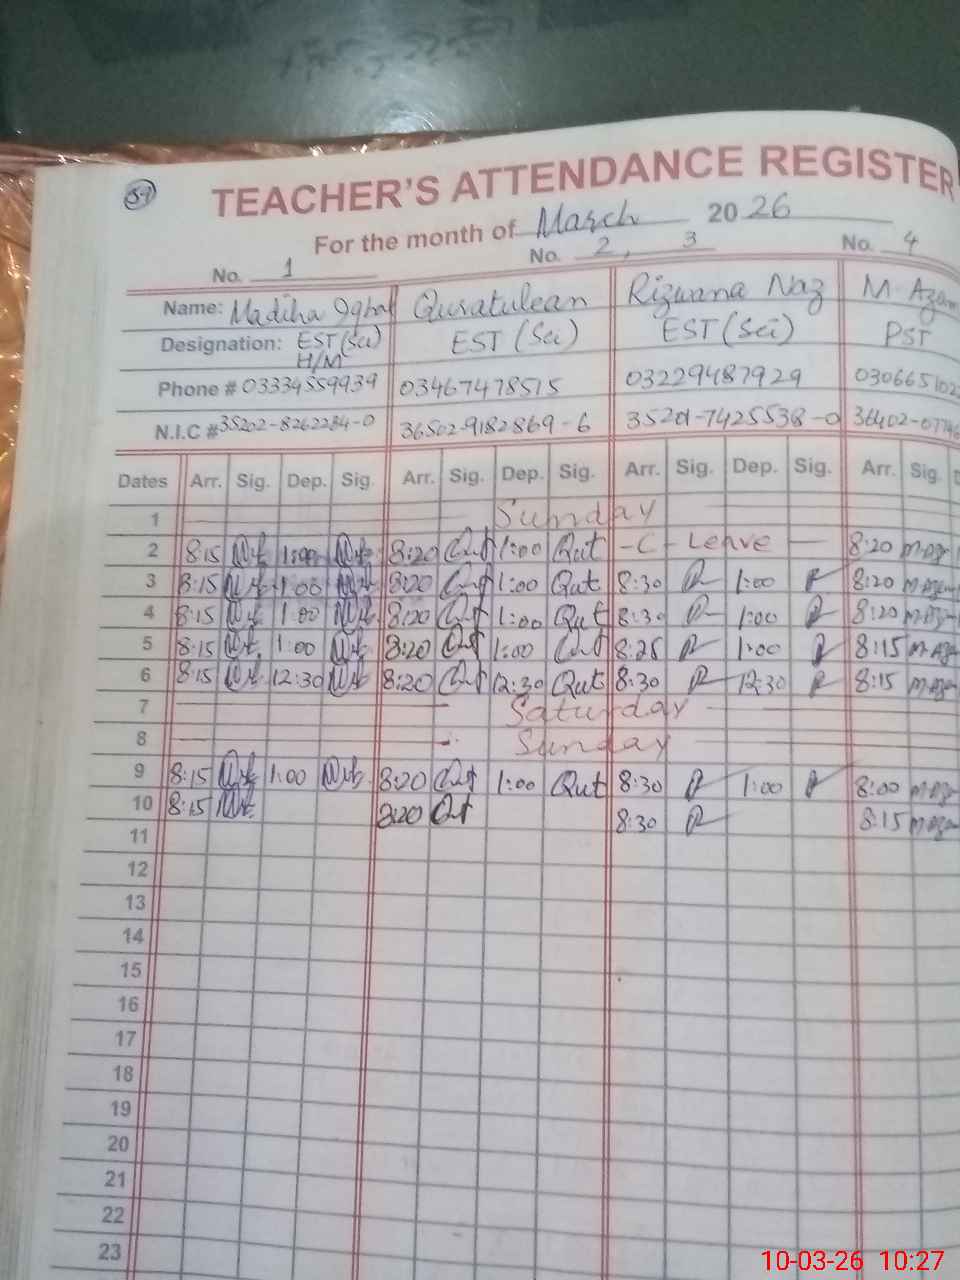 S-1
TEACHER'S ATTENDANCE REGISTER
For the month of March 2026
No. 1 No. 2, 3 No. 4
Name: Madiha Iqbal Quratulean Rizwana Naz M. Azam
Designation: EST (Sci) H/M EST (Sci) EST (Sci) PST
Phone # 03334559939 03467478515 03229487929 030665102
N.I.C # 35202-8262284-0 36502-9182869-6 35201-7425538-0 36402-077
Dates Arr. Sig. Dep. Sig. Arr. Sig. Dep. Sig. Arr. Sig. Dep. Sig. Arr. Sig. D
1 Sunday
2 8:15 1:00 8:20 Qut 1:00 Qut -C- Leave 8:20
3 8:15 1:00 8:20 Qut 1:00 Qut 8:30 R 1:00 R 8:20
4 8:15 1:00 8:20 Qut 1:00 Qut 8:30 R 1:00 R 8:20
5 8:15 1:00 8:20 Qut 1:00 Qut 8:25 R 1:00 R 8:15
6 8:15 12:30 8:20 Qut 12:30 Qut 8:30 R 12:30 R 8:15
7 Saturday
8 Sunday
9 8:15 1:00 8:20 Qut 1:00 Qut 8:30 R 1:00 R 8:00
10 8:15 8:20 Qut 8:30 R 8:15
11
12
13
14
15
16
17
18
19
20
21
22
23
10-03-26 10:27